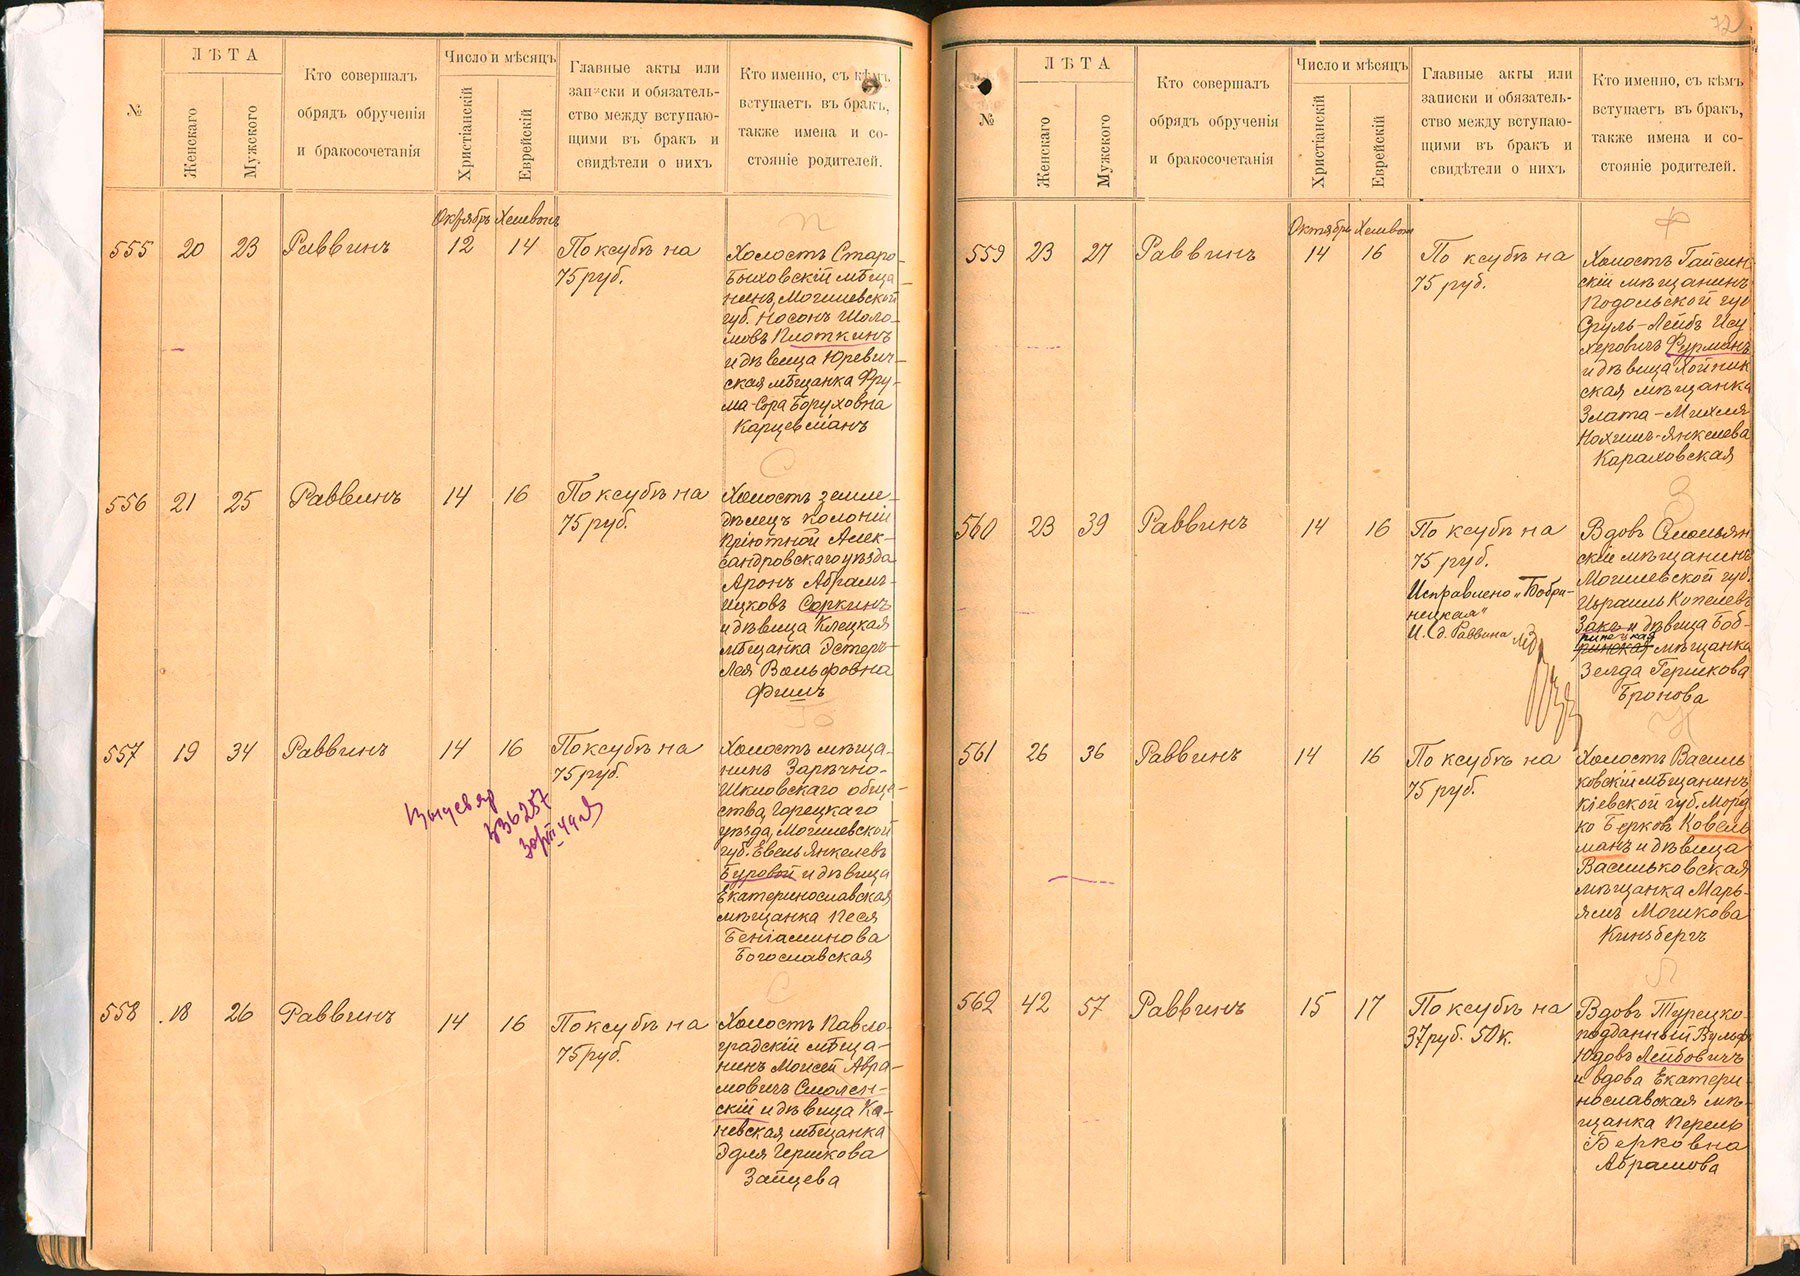 №
ЛѢТА
Женскаго
Мужского
Кто совершалъ
обрядъ обрученія
и бракосочетанія
Число и мѣсяцъ
Христіанскій
Еврейскій
Главные акты или
записки и обязатель-
ство между вступаю-
щими въ бракъ и
свидѣтели о нихъ
Кто именно, съ кѣмъ
вступаетъ въ бракъ,
также имена и со-
стояніе родителей.
Октябрь Хешвонъ
П
555 20 23 Раввинъ 12 14 По ксубѣ на
75 руб.
Холостъ Старо-
Быховскій мѣща
нинъ, Могилевской
губ. Носонъ Шоло-
мовъ Плоткинъ
и дѣвица Юревич-
ская мѣщанка Фру-
ма-Сора Боруховна
Карцевманъ
С
556 21 25 Раввинъ 14 16 По ксубѣ на
75 руб.
Холостъ земле-
дѣлецъ колоніи
Пріютной Алек-
сандровскаго уѣзда
Аронъ Абрамъ-
Ицковъ Соркинъ
и дѣвица Клецкая
мѣщанка Эстеръ-
Лея Вольфовна
Фишъ
Б
557 19 34 Раввинъ 14 16 По ксубѣ на
75 руб.
Холостъ мѣща-
нинъ Зарѣчно-
Шкловскаго обще-
ства, Горецкаго
уѣзда, Могилевской
губ. Евель Янкелевъ
Буровой и дѣвица
Екатеринославская
мѣщанка Песя
Беніаминова
Богославская
С
558 18 26 Раввинъ 14 16 По ксубѣ на
75 руб.
Холостъ Павло-
градскій мѣща-
нинъ Моисей Авра-
мовичъ Смолен-
скій и дѣвица Ка-
невская мѣщанка
Эдля Гершкова
Зайцева
72
№
ЛѢТА
Женскаго
Мужского
Кто совершалъ
обрядъ обрученія
и бракосочетанія
Число и мѣсяцъ
Христіанскій
Еврейскій
Главные акты или
записки и обязатель-
ство между вступаю-
щими въ бракъ и
свидѣтели о нихъ
Кто именно, съ кѣмъ
вступаетъ въ бракъ,
также имена и со-
стояніе родителей.
Октябрь Хешвонъ
Ф
559 23 27 Раввинъ 14 16 По ксубѣ на
75 руб.
Холостъ Гайсин
скій мѣщанинъ
Подольской губ
Сруль-ЛейбъИсу
херовичъ Фурманъ
и дѣвица Хойник
ская мѣщанка
Злата-Михля
Нохимъ-Янкелева
Караховская
З
560 23 39 Раввинъ 14 16 По ксубѣ на
75 руб.
Исправлено „Бобри-
нецкая"
И. д. Раввина
Вдовъ Смольян
скій мѣщанинъ
Могилевской губ.
Израиль Копелевъ
Закъ и дѣвица Боб-
ринецкая
ринская мѣщанка
Зелда Гершкова
Бронова
К
561 26 36 Раввинъ 14 16 По ксубѣ на
75 руб.
Холостъ Василь
ковскій мѣщанинъ
Кіевской губ.Морд
ко Берковъ Ковель
манъ и дѣвица
Васильковская
мѣщанка Марь-
ямъ Мошкова
Кинзбергъ
Л
562 42 57 Раввинъ 15 17 По ксубѣ на
37 руб. 50 к.
Вдовъ Турецко-
подданный Вульфъ
Юдовъ Лейбовичъ
и вдова Екатери-
нославская мѣ-
щанка Перель
Берковна
Абрамова